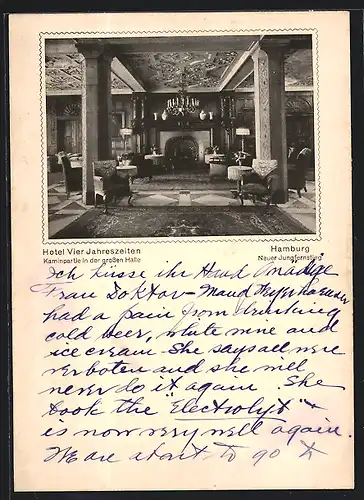 Hotel Vier Jahreszeiten
Kaminpartie in der großen Halle
Hamburg
Neuer Jungfernstieg
Ich küsse ihr Hand Gnädige
Frau Doktor - Maud
had a pain from drinking
cold beer, white wine and
ice cream She says all were
verboten and she will
never do it again. She
took the "Electrolyt" +
is now very well again.
We are about to go to